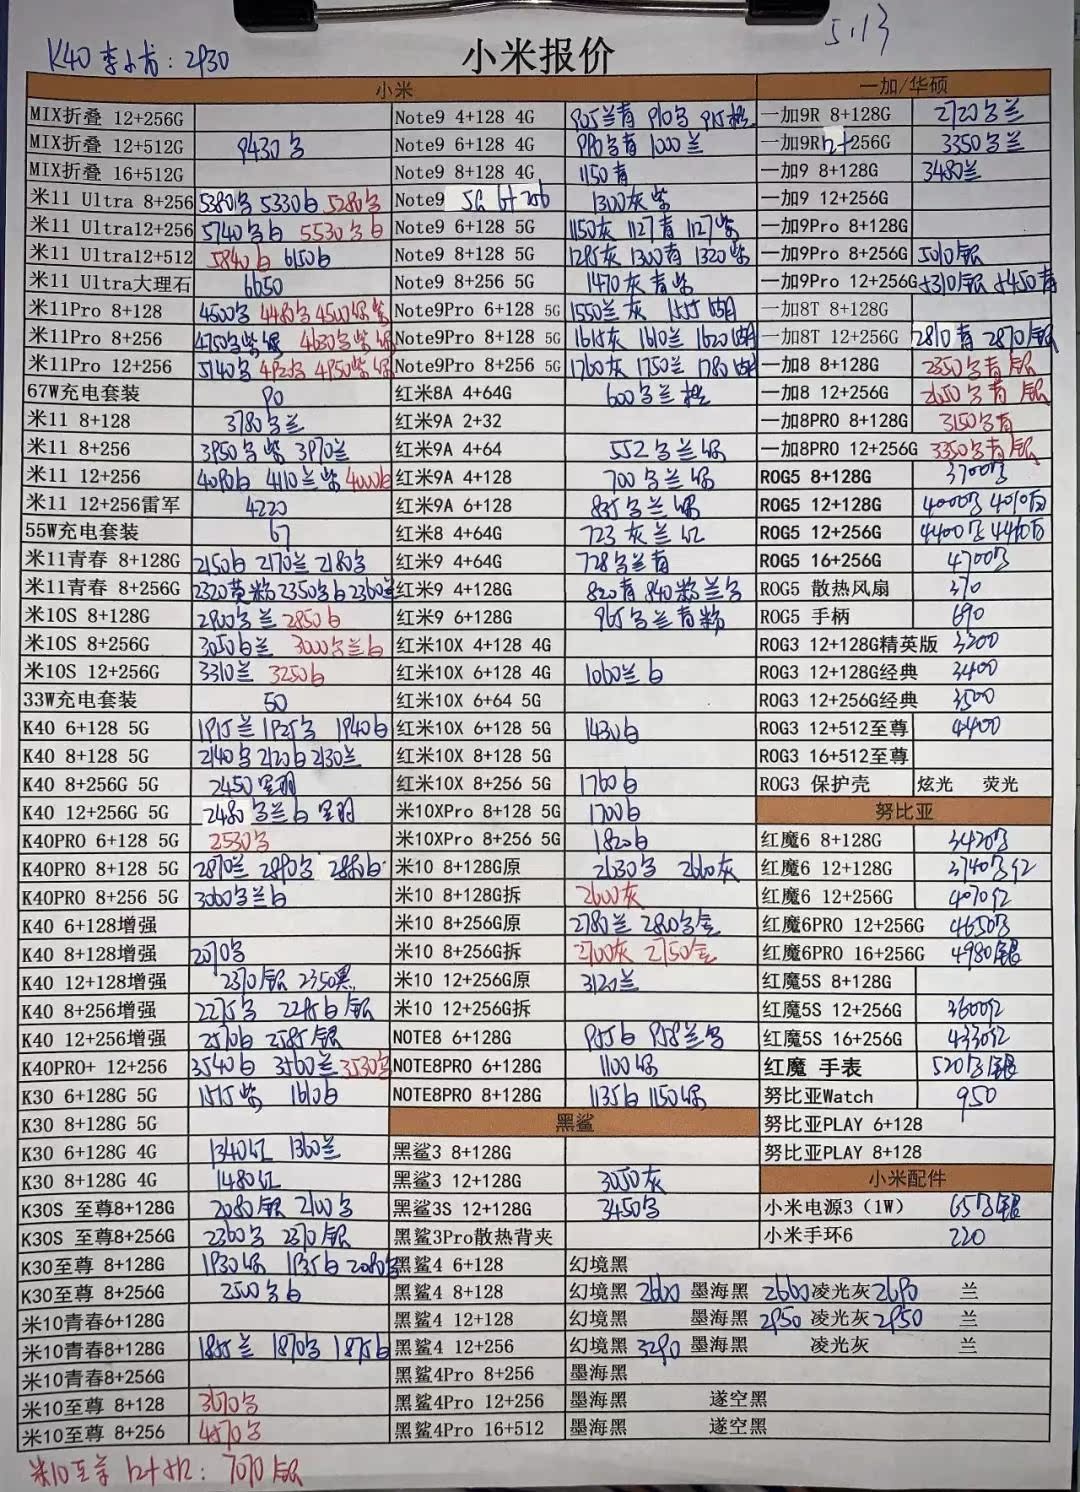 5.13
K40 李小龙：2930
小米报价
小米
MIX折叠 12+256G
MIX折叠 12+512G 9430字
MIX折叠 16+512G
米11 Ultra 8+256 5380字 5330白 5280字
米11 Ultra12+256 5740字白 5530字白
米11 Ultra12+512 5840白 6150白
米11 Ultra大理石 6650
米11Pro 8+128 4500字 4480字 4500绿紫
米11Pro 8+256 4750字紫绿 4630字紫绿
米11Pro 12+256 5140字 4920字 4950紫绿
67W充电套装 90
米11 8+128 3780字兰
米11 8+256 3950字紫 3970兰
米11 12+256 4080白 4110兰紫 4000白
米11 12+256雷军 4220
55W充电套装 67
米11青春 8+128G 2150白 2170兰 2180字
米11青春 8+256G 2320黄粉 2350字白 2360兰
米10S 8+128G 2900字兰 2850白
米10S 8+256G 3050白兰 3000字兰白
米10S 12+256G 3310兰 3250白
33W充电套装 50
K40 6+128 5G 1915兰 1925字 1940白
K40 8+128 5G 2140字 2120白 2130兰
K40 8+256G 5G 2450字羽
K40 12+256G 5G 2480字兰白
K40PRO 6+128 5G 2530字
K40PRO 8+128 5G 2870兰 2890字 2880白
K40PRO 8+256 5G 3060字兰白
K40 6+128增强
K40 8+128增强 2070字
K40 12+128增强 2370银 2350黑
K40 8+256增强 2275字 2285白银
K40 12+256增强 2570白 2585银
K40PRO+ 12+256 3540白 3560兰 3530字
K30 6+128G 5G 1575紫 1610白
K30 8+128G 5G
K30 6+128G 4G 1340红 1360兰
K30 8+128G 4G 1480红
K30S 至尊8+128G 2080银 2100字
K30S 至尊8+256G 2360字 2370银
K30至尊 8+128G 1930绿 1935白 2080字
K30至尊 8+256G 2500字白
米10青春6+128G
米10青春8+128G 1855兰 1870字 1875白
米10青春8+256G
米10至尊 8+128 3670字
米10至尊 8+256 4870字
Note9 4+128 4G 905兰青 910字 915橙
Note9 6+128 4G 990字青 1000兰
Note9 8+128 4G 1150青
Note9 5G 6+256 1300灰紫
Note9 6+128 5G 1150灰 1127青 1127紫
Note9 8+128 5G 1285灰 1300青 1320紫
Note9 8+256 5G 1470灰青紫
Note9Pro 6+128 5G 1550兰灰 1555湖
Note9Pro 8+128 5G 1615灰 1610兰 1620湖
Note9Pro 8+256 5G 1760灰 1750兰 1780湖
红米8A 4+64G 600字兰橙
红米9A 2+32
红米9A 4+64 552字兰绿
红米9A 4+128 700字兰绿
红米9A 6+128 835字兰绿
红米8 4+64G 723灰兰红
红米9 4+64G 728字兰青
红米9 4+128G 820青 840粉兰字
红米9 6+128G 965字兰青粉
红米10X 4+128 4G
红米10X 6+128 4G 1060兰白
红米10X 6+64 5G
红米10X 6+128 5G 1430白
红米10X 8+128 5G
红米10X 8+256 5G 1760白
米10XPro 8+128 5G 1700白
米10XPro 8+256 5G 1820白
米10 8+128G原 2630字 2660灰
米10 8+128G拆 2600灰
米10 8+256G原 2780兰 2800字金
米10 8+256G拆 2700灰 2750金
米10 12+256G原 3120兰
米10 12+256G拆
NOTE8 6+128G 955白 958兰字
NOTE8PRO 6+128G 1100绿
NOTE8PRO 8+128G 1135白 1150绿
黑鲨
黑鲨3 8+128G
黑鲨3 12+128G 3050灰
黑鲨3S 12+128G 3450字
黑鲨3Pro散热背夹
黑鲨4 6+128 幻境黑
黑鲨4 8+128 幻境黑 2600 墨海黑 2660 凌光灰 2690 兰
黑鲨4 12+128 幻境黑 墨海黑 2950 凌光灰 2950 兰
黑鲨4 12+256 幻境黑 3290 墨海黑 凌光灰 兰
黑鲨4Pro 8+256 墨海黑
黑鲨4Pro 12+256 墨海黑 遂空黑
黑鲨4Pro 16+512 墨海黑 遂空黑
一加/华硕
一加9R 8+128G 2720字兰
一加9R 12+256G 3350字兰
一加9 8+128G 3480兰
一加9 12+256G
一加9Pro 8+128G
一加9Pro 8+256G 5010银
一加9Pro 12+256G 5310银 5450青
一加8T 8+128G
一加8T 12+256G 2810青 2870银
一加8 8+128G 2350字青银
一加8 12+256G 2650字青银
一加8PRO 8+128G 3150字青
一加8PRO 12+256G 3350字青银
ROG5 8+128G 3700字
ROG5 12+128G 4000字 4010白
ROG5 12+256G 4400字 4410白
ROG5 16+256G 4700字
ROG5 散热风扇 370
ROG5 手柄 690
ROG3 12+128G精英版 3200
ROG3 12+128G经典 3400
ROG3 12+256G经典 3500
ROG3 12+512至尊 4400
ROG3 16+512至尊
ROG3 保护壳 炫光 荧光
努比亚
红魔6 8+128G 3420字
红魔6 12+128G 3740字红
红魔6 12+256G 4070红
红魔6PRO 12+256G 4650字
红魔6PRO 16+256G 4980银
红魔5S 8+128G
红魔5S 12+256G 3600红
红魔5S 16+256G 4330红
红魔 手表 520字银
努比亚Watch 950
努比亚PLAY 6+128
努比亚PLAY 8+128
小米配件
小米电源3（1W） 65字银
小米手环6 220
米10至尊 12+512：7070银